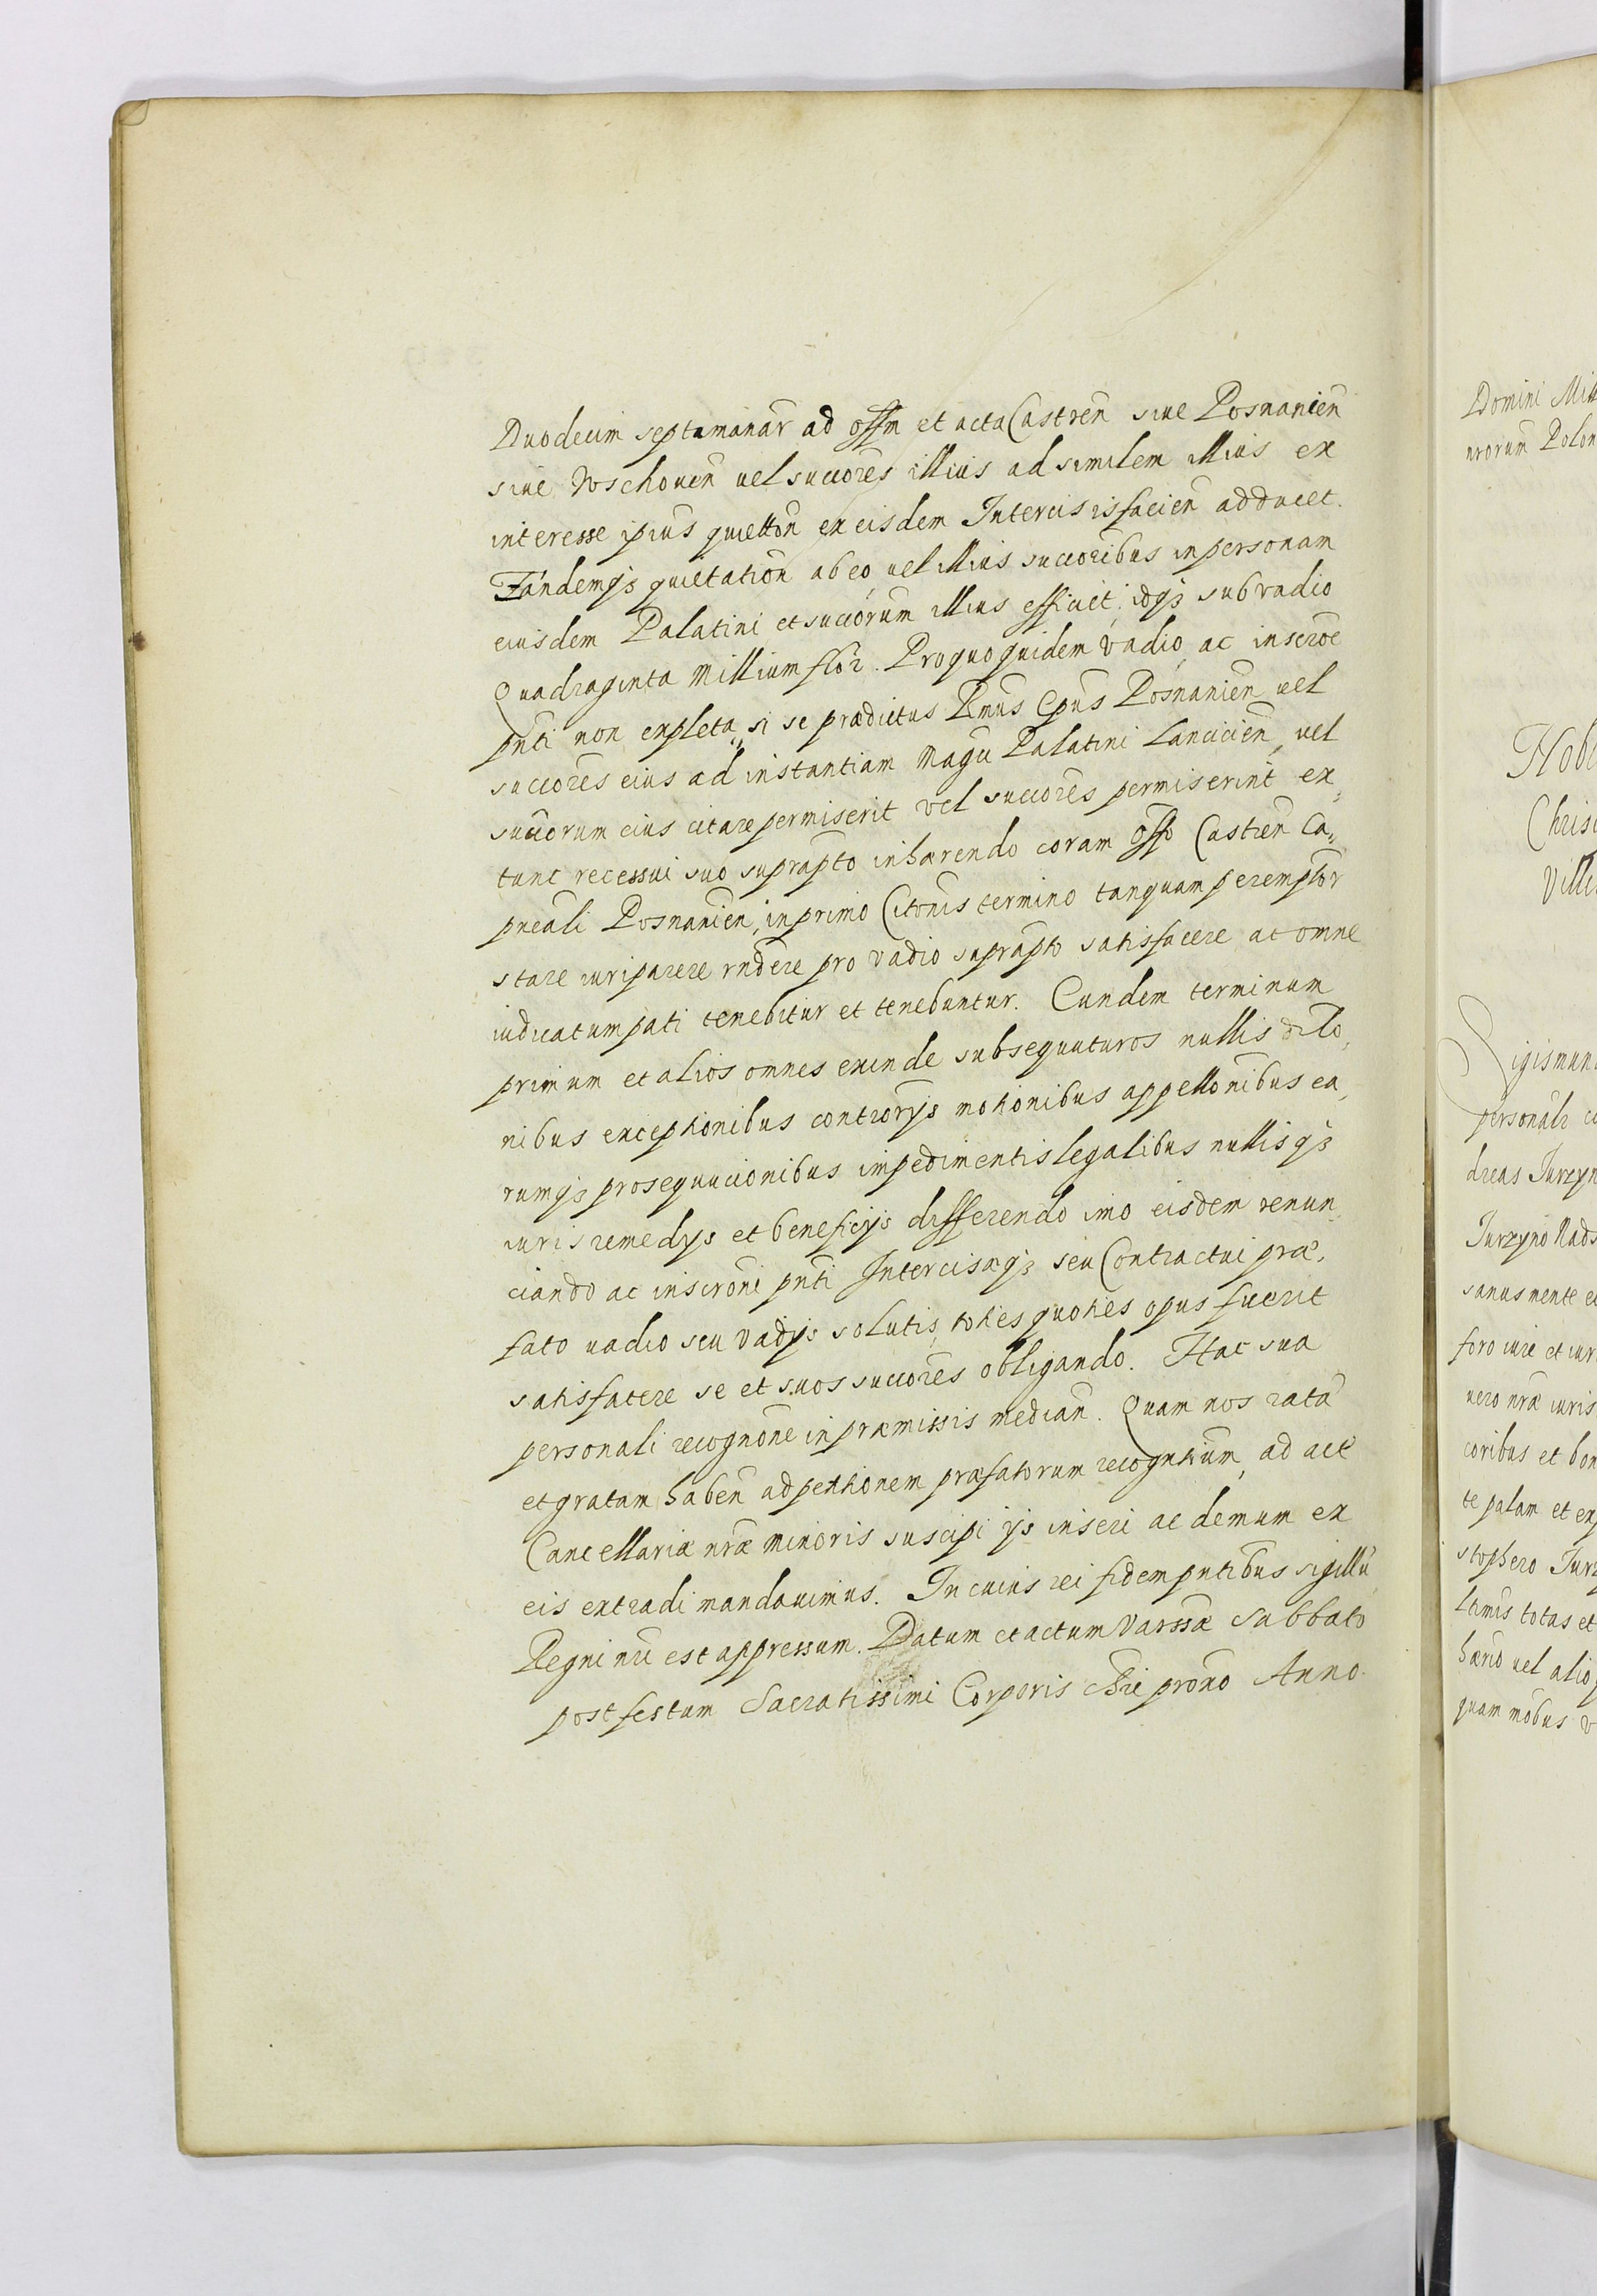 Duodecim septemanar̄ ad offm̄ et acta Castren̄ siue Posnanien̄
siue Wschouen̄ uel succores̄ illius ad similem illius ex
interesse ipius̄ quietton̄ ex eisdem Intercisis facien̄ adducet.
Tandemqȝ quietation̄ ab eo uel illius succoribus̄ in personam
eiusdem Palatini et succorum̄ illius efficiet; idqȝ sub vadio
Quadraginta Millium flor̄. Pro quo quidem vadio, ac inscrōe
pn̄ti non expleta, si se prædictus Rmūs Epūs Posnanien̄ uel
succores̄ eius ad instantiam Magci Palatini Lancicien̄, uel
succorum eius citare permiserit vel succores̄ permiserint ex,
tunc recessui suo suprapto̅ inhærendo coram Offo̅ Castren̄ Ca„
pneali̅ Posnanien̄, in primo Citōnis termino tanquam peremptor̄
stare iuri parere rn̄dere pro vadio suprapto̅ satisfacere ac omne
iudicatum pati tenebitur et tenebuntur. Eundem terminum
primum et alios omnes exinde subsequuturos nullis dilo̅,
nibus exceptionibus contrōrijs motionibus appellōnibus ea,
rumqȝ prosequucionibus impedimentis legalibus nullisqȝ
iuris remedijs et beneficijs differendo imo eisdem renun,
ciando ac inscrōni pn̄ti Intercisæqȝ seu Contractui præ,
fato vadio seu vadijs solutis, toties quoties opus fuerit
satisfacere se et suos succores̄ obligando. Hac sua
personali recognōne in præmissis median̄. Quam nos ratā
et gratam haben̄ ad petitionem præfatorum recognt̄ium, ad act̄
Cancellariæ nr̄æ Minoris suscipi ijs inseri ac demum ex
eis extradi mandauimus. In cuius rei fidem pn̄tibus sigillū
Regni nri̅ est appressum. Datum et actum Varssæ̅ Sabbato
post festum Sacratissimi Corporis Chri̅ prono̅ Anno
Domini
Polon
Nobi
Chris
Sigismun
personalr̄
dreas Jurzyn
Jurzyno Rads
sanus mente e
foro iure et iur
uero nr̄æ iuris
te palam et ex
stophero Jurz
totas et
uel alio
quam